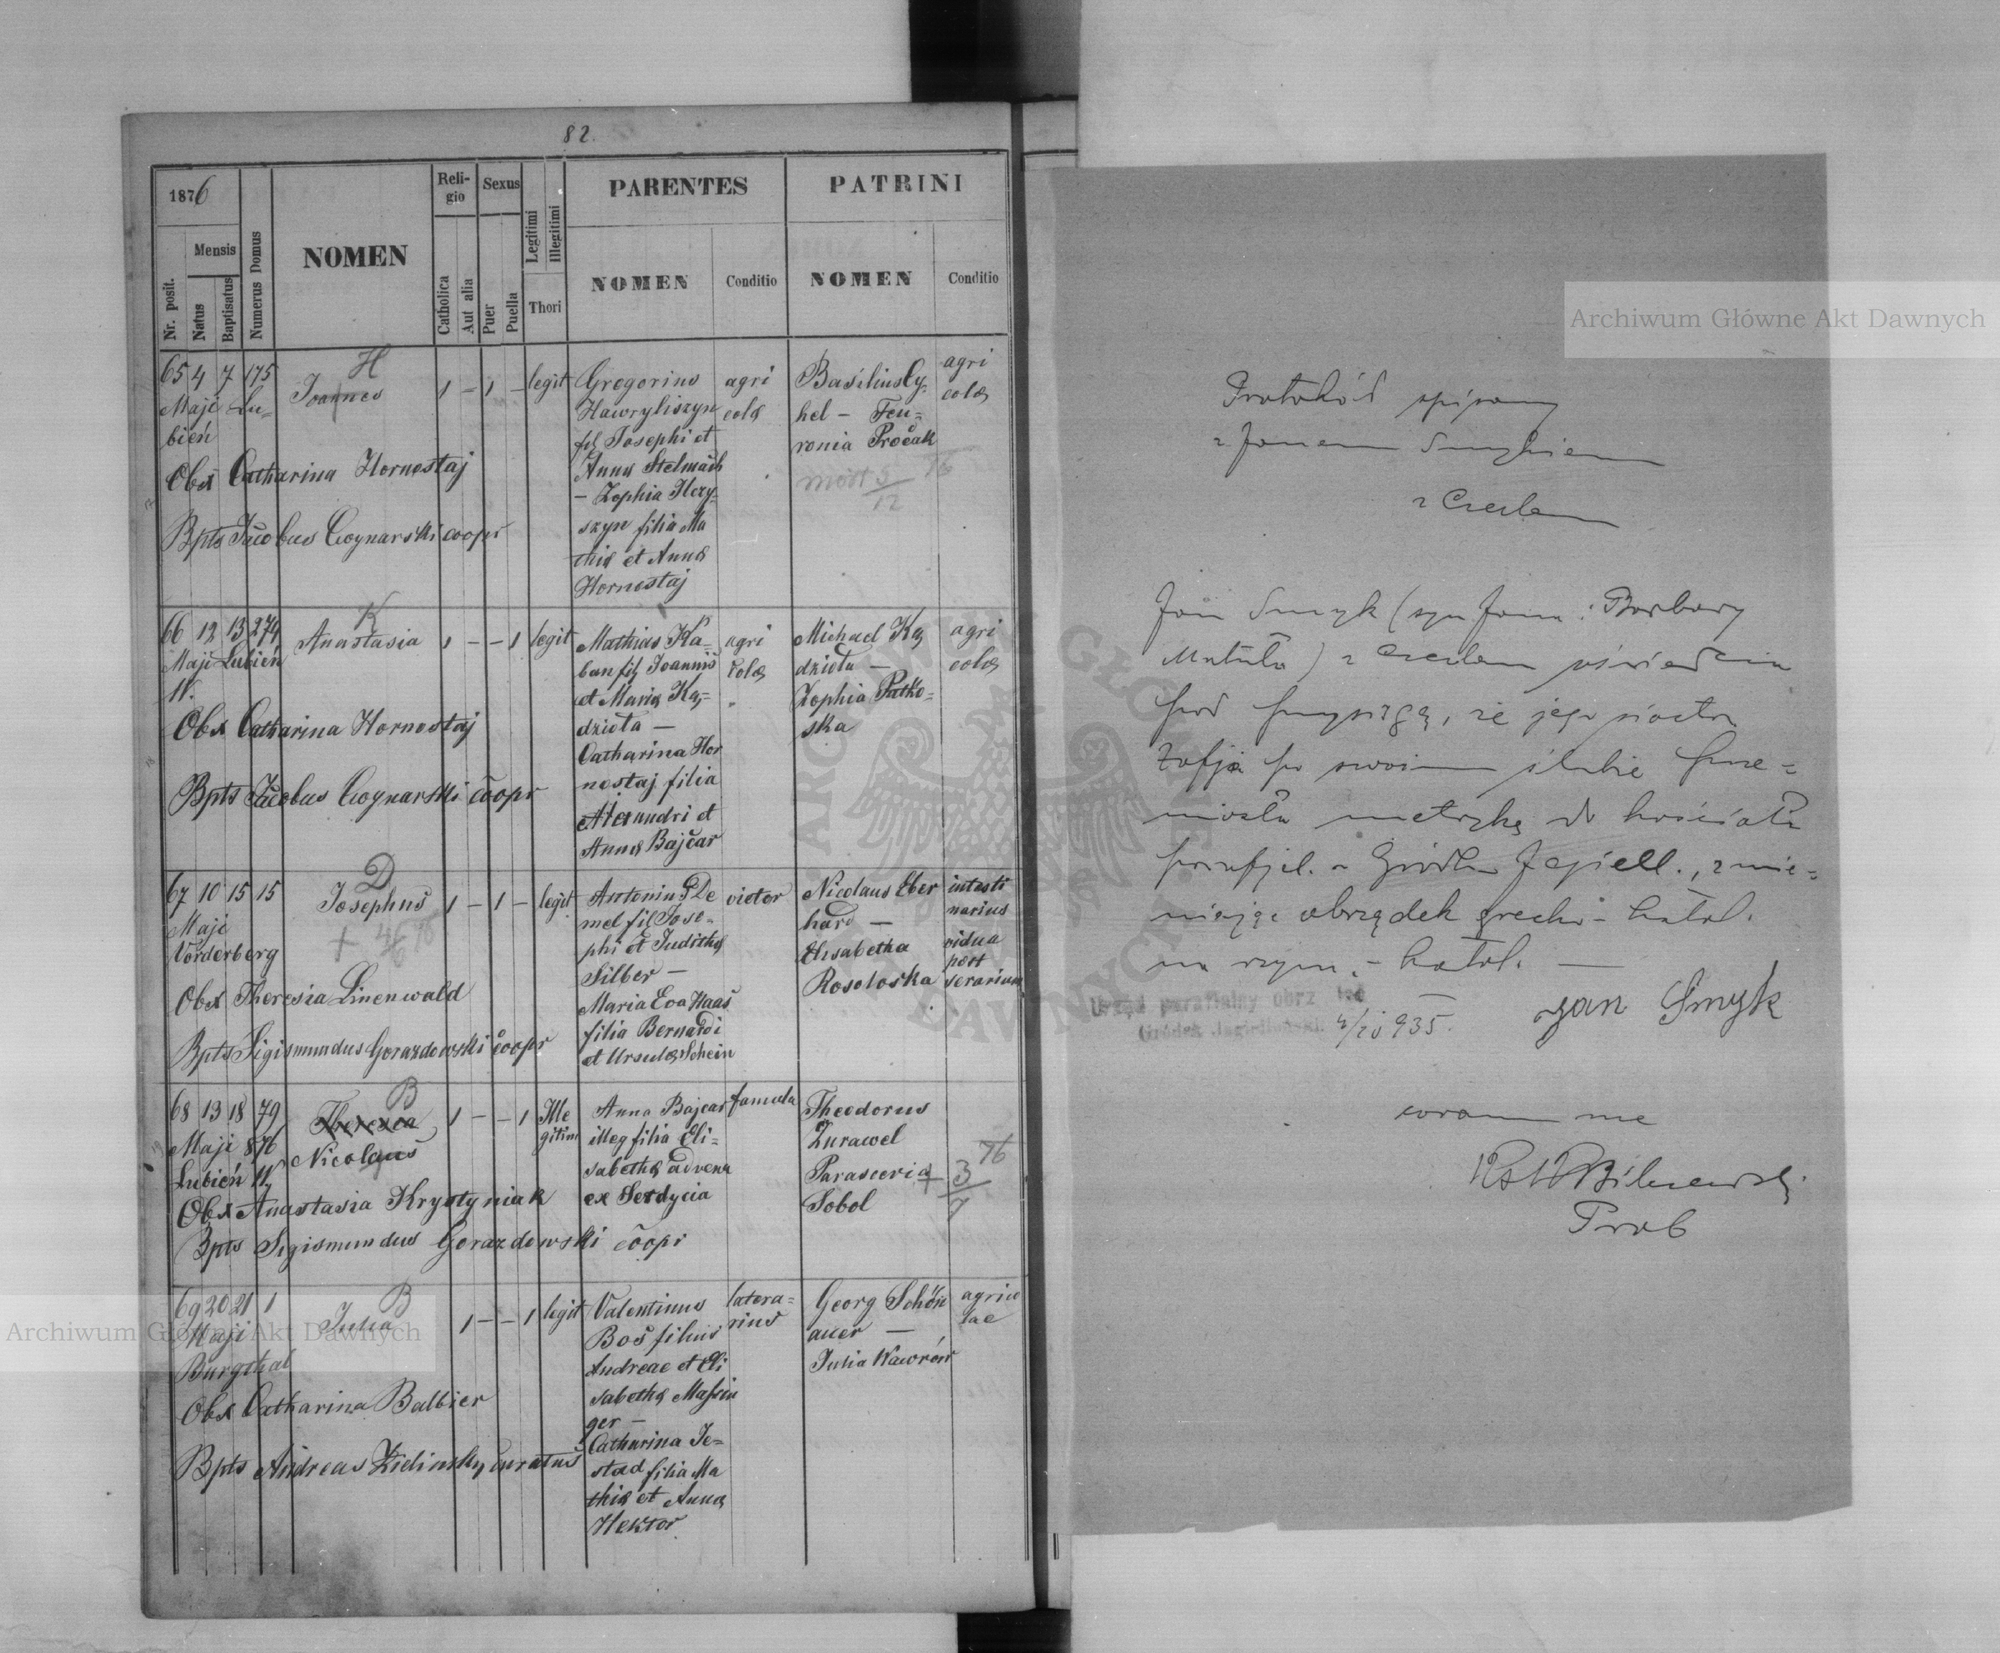 82.
1876
Nr. posit.
Mensis
Natus
Baptisatus
Numerus Domus
NOMEN
Reli-
gio
Catholica
Aut alia
Sexus
Puer
Puella
Legitimi
Illegitimi
Thori
PARENTES
NOMEN
Conditio
PATRINI
NOMEN
Conditio
65 4 7 175
Maji Lu-
bień
H
Joannes
1 - 1 - legit
Gregorius
Hawryliszyn
fil Josephi et
Anna Stelmach
- Zophia Hry-
szyn filia Ma
thiæ et Annæ
Hornostaj
agri
colæ
Basilius Cy
hel - Feu-
ronia Procak
agri
colæ
mort 3/12 76
Obst Catharina Hornostaj
Bpts Jacobus Coynarski coopr
66 12 13 274
Maji Lubień
W.
K
Anastasia
1 - - 1 legit
Mathias Ka-
ban fil Joannis
et Mariæ Ką-
dzioła -
Catharina Hor
nostaj filia
Alexandri et
Annæ Bajcar
agri
colæ
Michael Ką
dzioła -
Zophia Patko-
ska
agri
colæ
Obst Catharina Hornostaj
Bpts Jacobus Coynarski coopr
67 10 15 15
Maji
Vorderberg
D
Josephus
1 - 1 - legit
Antonius De
mel fil Jose-
phi et Judithæ
Silber -
Maria Eva Haas
filia Bernardi
et Ursulæ Schein
victor
Nicolaus Eber
hard -
Elisabetha
Rosoloska
intesti
narius
vidua
post
Obst Theresia Linenwald
Bpts Sigismundus Gorazdowski coopr
68 13 18 79
Maji 876
Lubień W
B
Theresia
Nicolaus
1 - - 1 Ille
gitim
Anna Bajcar
illeg filia Eli-
sabethæ advena
ex Serdycia
famula
Theodorus
Zurawel
Parascevia
Sobol
+ 3/7 76
Obst Anastasia Krystyniak
Bpts Sigismundus Gorazdowski coopr
69 20 21 1
Maji
Burgthal
B
Julia
1 - - 1 legit
Valentinus
Bos filius
Andreae et Eli
sabethæ Massin
ger -
Catharina Je-
stad filia Ma
thiæ et Annæ
Hektor
latera-
rius
Georg Schön
auer -
Julia Wawrów
agrico
lae
Obst Catharina Balbier
Bpts Andreas Zielinsky curatus
Protokół spisany
z Janem Smykiem
z Czerlan
Jan Smyk (syn Jana i Barbary
Matuła) z Czerlan oświadcza
pod przysięgą, że jego siostra
Zofja po swoim ślubie prze-
niosła metrykę do kościoła
parafjal. w Gródku Jagiell., zmie-
niając obrządek grecko-katol.
na rzym.-katol. —
Urząd parafialny obrz. łać
Gródek Jagielloński
935.
Jan Smyk
coram me
Prob
Archiwum Główne Akt Dawnych
Archiwum Główne Akt Dawnych